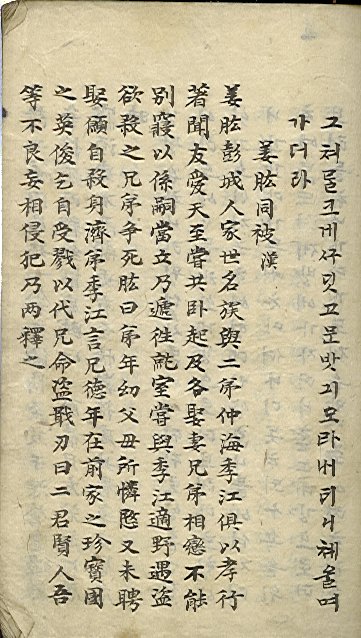 그처믈그게ᄭᅮ딧고문밧긔모라내티니쳬울며
가더라
姜肱同被 漢
姜肱彭城人家世名族與二弟仲海季江俱以孝行
著聞友愛天至嘗共卧起及各娶妻兄弟相戀不能
別寢以係嗣當立乃遞徃就室嘗與季江適野遇盜
欲殺之兄弟争死肱曰弟年幼父母所憐愍又未聘
娶願自殺身濟弟季江言兄德年在前家之珍寶國
之英俊乞自受戮以代兄命盗戢刃曰二君賢人吾
等不良妄相侵犯乃两釋之